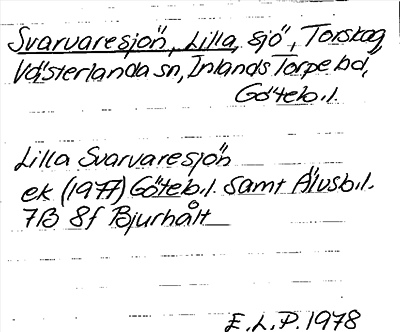 Svarvaresjön, Lilla, sjö, Torskog,
Västerlanda sn, Inlands Torpe hd,
Göteb.l.
Lilla Svarvaresjön
ek (1977) Göteb.l. samt Älvsb.l.
7B 8f Bjurhålt
E.L.P. 1978